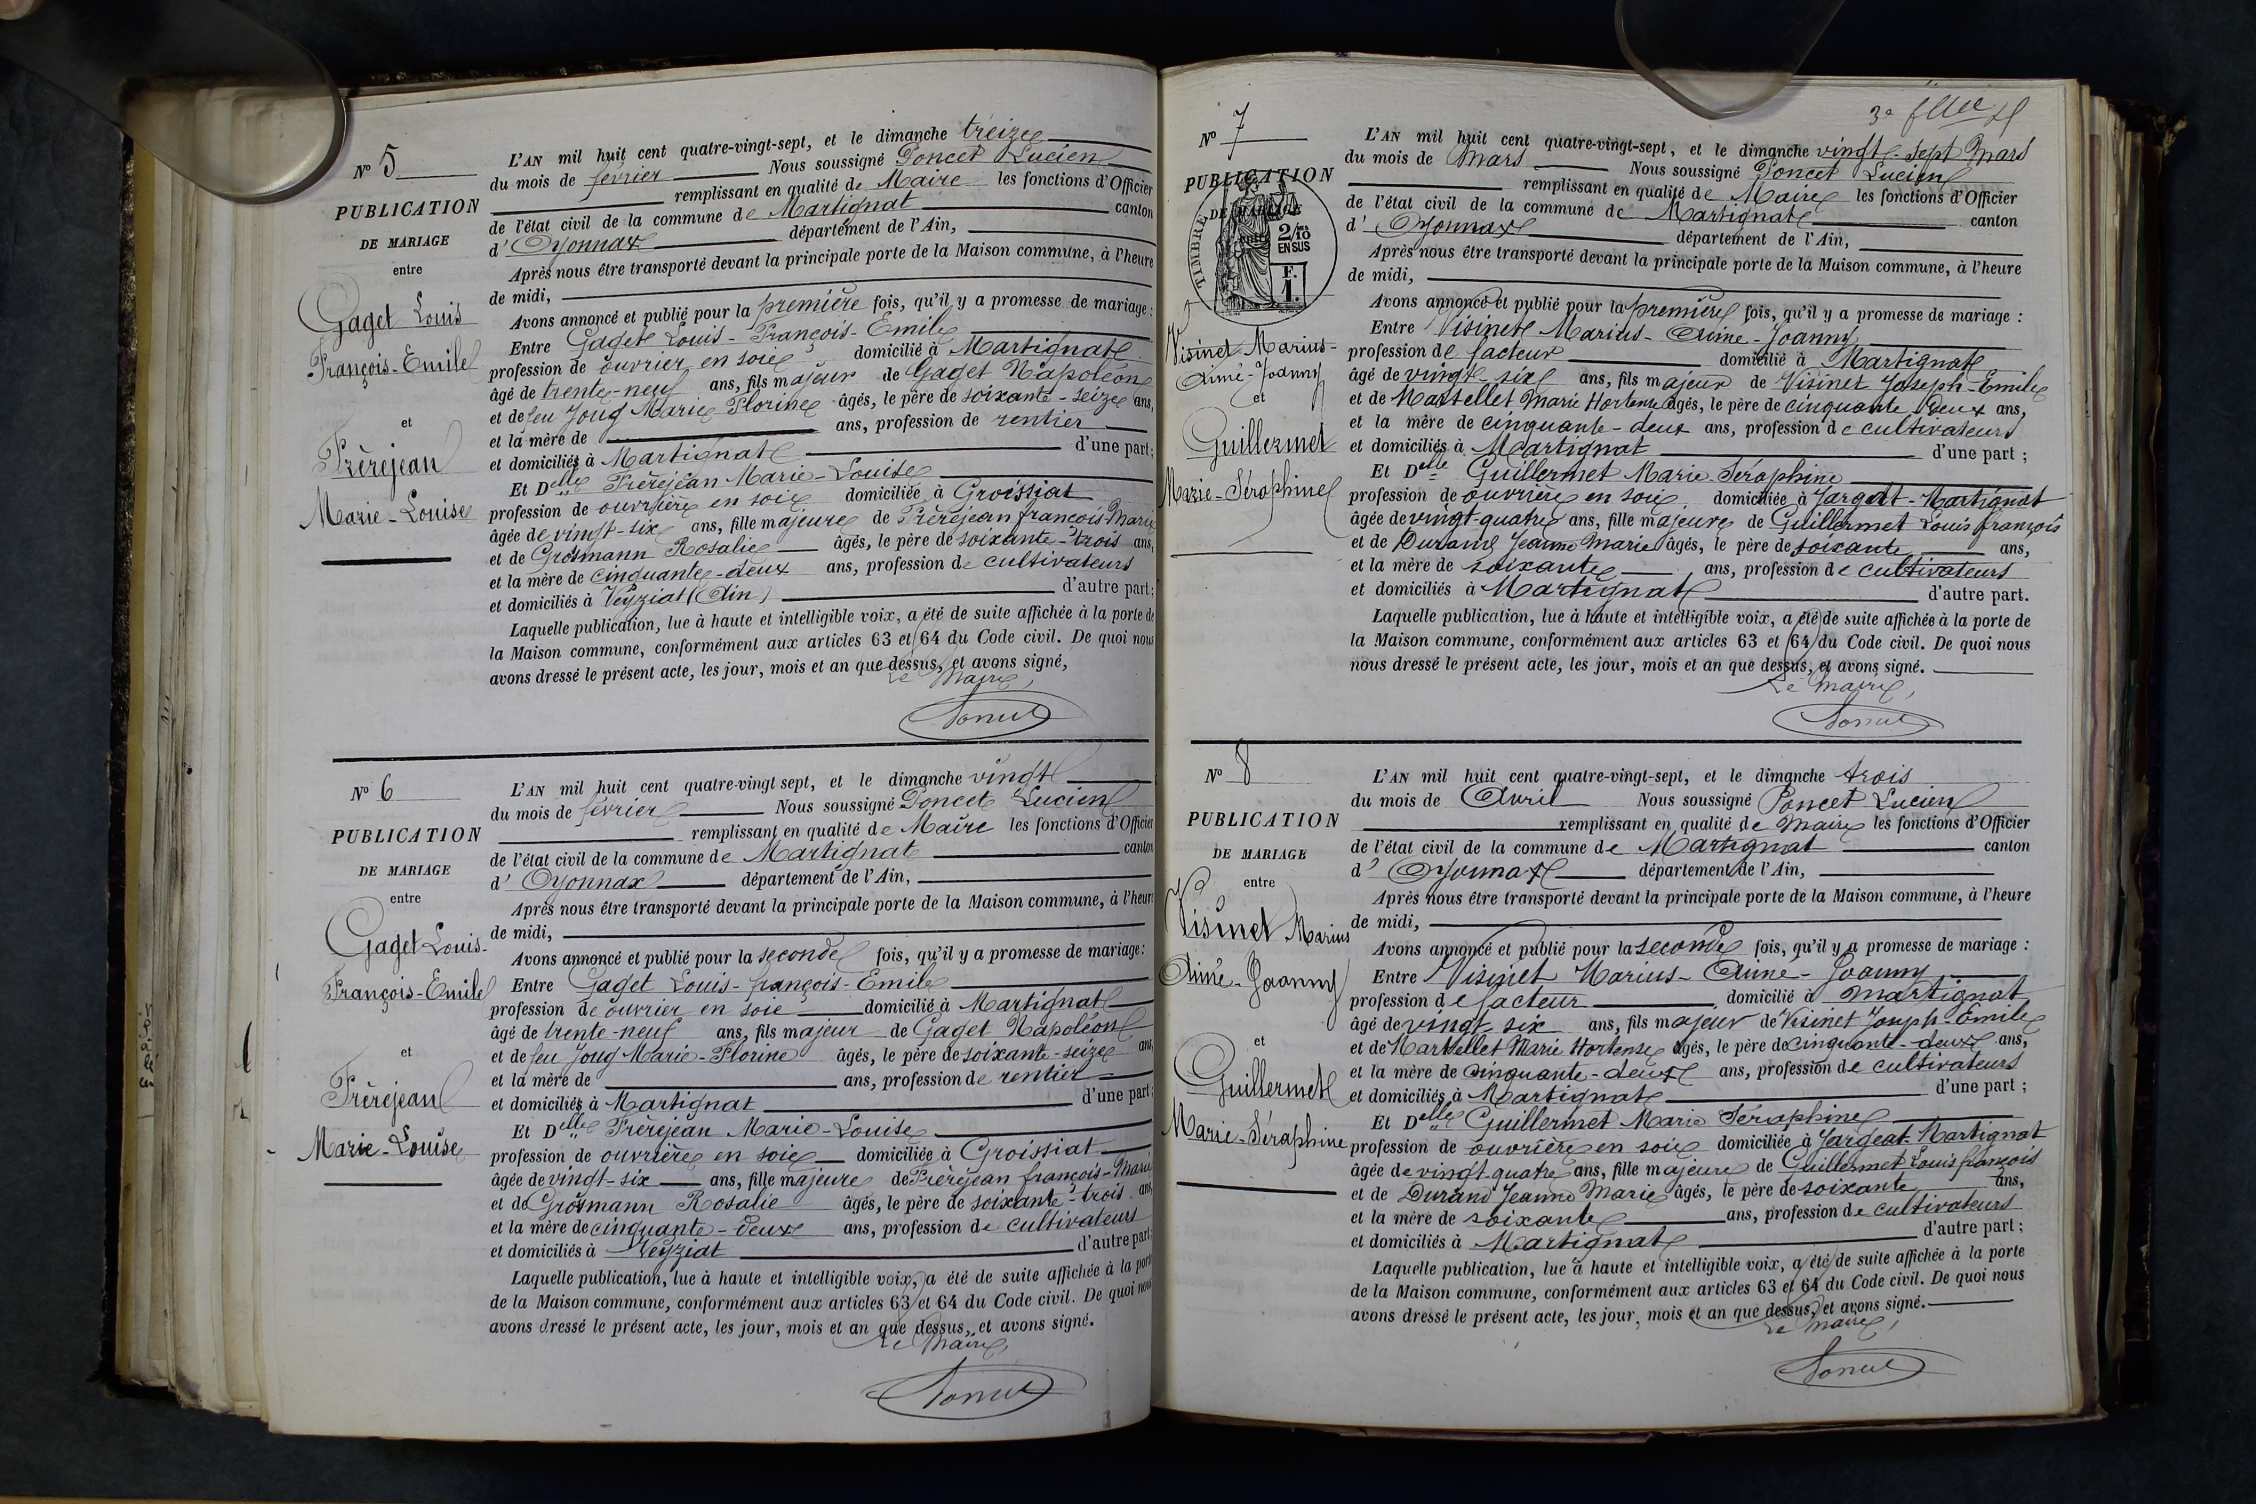 N° 5
PUBLICATION
DE MARIAGE
entre
Gaget Louis
François-Emile
et
Frèrejean
Marie-Louise
L'AN mil huit cent quatre-vingt-sept, et le dimanche treize
du mois de février Nous soussigné Poncet Lucien
remplissant en qualité de Maire les fonctions d'Officier
de l'état civil de la commune de Martignat canton
d'Oyonnax département de l'Ain,
Après nous être transporté devant la principale porte de la Maison commune, à l'heure
de midi,
Avons annoncé et publié pour la première fois, qu'il y a promesse de mariage :
Entre Gaget Louis-François-Emile
profession de ouvrier en soie domicilié à Martignat
âgé de trente-neuf ans, fils majeur de Gaget Napoléon
et de feu Joug Marie Florine âgés, le père de soixante-seize ans,
et la mère de ans, profession de rentier
et domiciliés à Martignat d'une part ;
Et Delle Frèrejean Marie-Louise
profession de ouvrière en soie domiciliée à Groissiat
âgée de vingt-six ans, fille majeure de Frèrejean françois-Marie
et de Grosmann Rosalie âgés, le père de soixante-trois ans,
et la mère de cinquante-deux ans, profession de cultivateurs
et domiciliés à Veyziat (Ain) d'autre part ;
Laquelle publication, lue à haute et intelligible voix, a été de suite affichée à la porte de
la Maison commune, conformément aux articles 63 et 64 du Code civil. De quoi nous
avons dressé le présent acte, les jour, mois et an que dessus, et avons signé,
Le Maire,
Poncet
N° 6
PUBLICATION
DE MARIAGE
entre
Gaget Louis-
François-Emile
et
Frèrejean
Marie-Louise
L'AN mil huit cent quatre-vingt sept, et le dimanche vingt
du mois de février Nous soussigné Poncet Lucien
remplissant en qualité de Maire les fonctions d'Officier
de l'état civil de la commune de Martignat canton
d'Oyonnax département de l'Ain,
Après nous être transporté devant la principale porte de la Maison commune, à l'heure
de midi,
Avons annoncé et publié pour la seconde fois, qu'il y a promesse de mariage :
Entre Gaget Louis-françois-Emile
profession de ouvrier en soie domicilié à Martignat
âgé de trente-neuf ans, fils majeur de Gaget Napoléon
et de feu Joug Marie-Florine âgés, le père de soixante-seize ans,
et la mère de ans, profession de rentier
et domiciliés à Martignat d'une part ;
Et Delle Frèrejean Marie-Louise
profession de ouvrière en soie domiciliée à Groissiat
âgée de vingt-six ans, fille majeure de Frèrejean françois-Marie
et de Grosmann Rosalie âgés, le père de soixante-trois ans,
et la mère de cinquante-deux ans, profession de cultivateurs
et domiciliés à Veyziat d'autre part ;
Laquelle publication, lue à haute et intelligible voix, a été de suite affichée à la porte
de la Maison commune, conformément aux articles 63 et 64 du Code civil. De quoi nous
avons dressé le présent acte, les jour, mois et an que dessus, et avons signé.
Le Maire,
Poncet
3e
N° 7
PUBLICATION
DE MARIAGE
entre
TIMBRE
2/10
EN SUS
F.
1.
Visinet Marius-
Aimé-Joanny
et
Guillermet
Marie-Séraphine
L'AN mil huit cent quatre-vingt-sept, et le dimanche vingt-sept Mars
du mois de Mars Nous soussigné Poncet Lucien
remplissant en qualité de Maire les fonctions d'Officier
de l'état civil de la commune de Martignat canton
d'Oyonnax département de l'Ain,
Après nous être transporté devant la principale porte de la Maison commune, à l'heure
de midi,
Avons annoncé et publié pour la première fois, qu'il y a promesse de mariage :
Entre Visinet Marius-Aimé-Joanny
profession de facteur domicilié à Martignat
âgé de vingt-six ans, fils majeur de Visinet Joseph-Emile
et de Martellet Marie Hortense âgés, le père de cinquante deux ans,
et la mère de cinquante-deux ans, profession de cultivateurs
et domiciliés à Martignat d'une part ;
Et Delle Guillermet Marie Séraphine
profession de ouvrière en soie domiciliée à Jargeat-Martignat
âgée de vingt-quatre ans, fille majeure de Guillermet Louis françois
et de Durand Jeanne Marie âgés, le père de soixante ans,
et la mère de soixante ans, profession de cultivateurs
et domiciliés à Martignat d'autre part.
Laquelle publication, lue à haute et intelligible voix, a été de suite affichée à la porte de
la Maison commune, conformément aux articles 63 et 64 du Code civil. De quoi nous
nous dressé le présent acte, les jour, mois et an que dessus, et avons signé.
Le Maire,
Poncet
N° 8
PUBLICATION
DE MARIAGE
entre
Visinet Marius
Aimé-Joanny
et
Guillermet
Marie-Séraphine
L'AN mil huit cent quatre-vingt-sept, et le dimanche trois
du mois de Avril Nous soussigné Poncet Lucien
remplissant en qualité de Maire les fonctions d'Officier
de l'état civil de la commune de Martignat canton
d'Oyonnax département de l'Ain,
Après nous être transporté devant la principale porte de la Maison commune, à l'heure
de midi,
Avons annoncé et publié pour la seconde fois, qu'il y a promesse de mariage :
Entre Visinet Marius-Aimé-Joanny
profession de facteur domicilié à Martignat
âgé de vingt six ans, fils majeur de Visinet Joseph-Emile
et de Martellet Marie Hortense âgés, le père de cinquante-deux ans,
et la mère de cinquante-deux ans, profession de cultivateurs
et domiciliés à Martignat d'une part ;
Et Delle Guillermet Marie Séraphine
profession de ouvrière en soie domiciliée à Jargeat-Martignat
âgée de vingt quatre ans, fille majeure de Guillermet Louis françois
et de Durand Jeanne Marie âgés, le père de soixante ans,
et la mère de soixante ans, profession de cultivateurs
et domiciliés à Martignat d'autre part ;
Laquelle publication, lue à haute et intelligible voix, a été de suite affichée à la porte
de la Maison commune, conformément aux articles 63 et 64 du Code civil. De quoi nous
avons dressé le présent acte, les jour, mois et an que dessus, et avons signé.
Le Maire,
Poncet